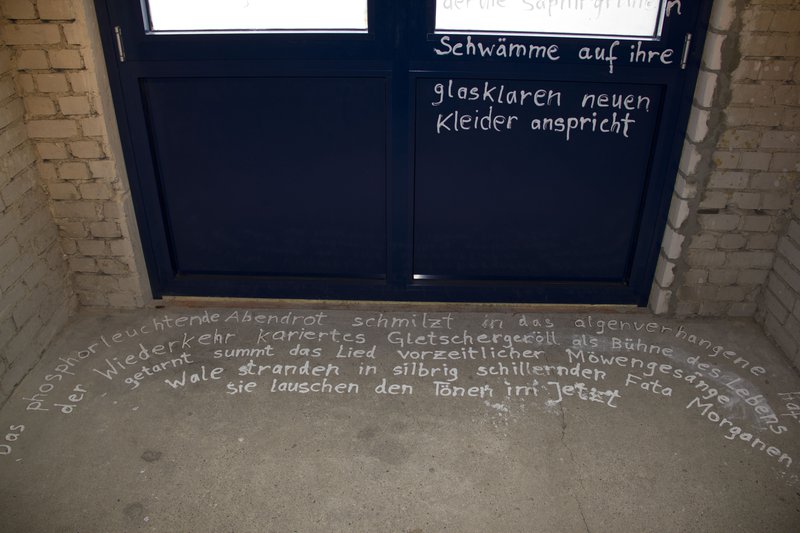 Schwämme auf ihre
glasklaren neuen
Kleider anspricht
Das phosphorleuchtende Abendrot schmilzt in das algenverhangene
der Wiederkehr kariertes Gletschergeröll als Bühne des Lebens
getarnt summt das Lied vorzeitlicher Möwengesänge
Wale stranden in silbrig schillernden Fata Morganen
sie lauschen den Tönen im Jetzt